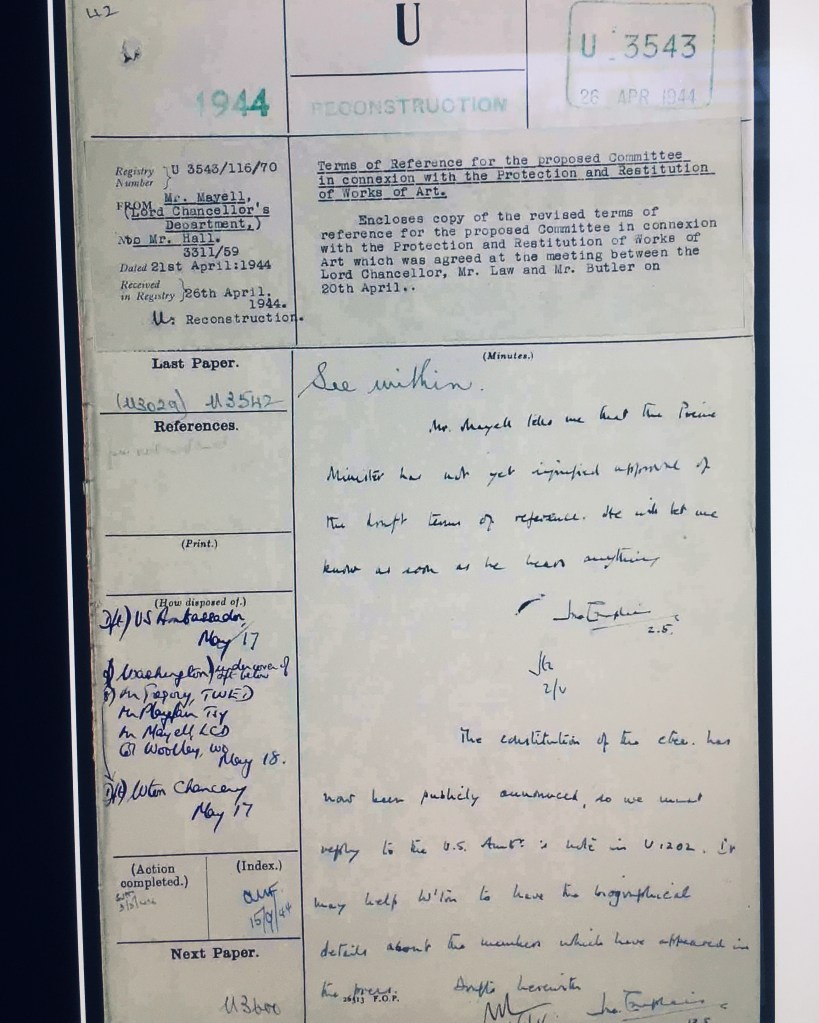 42
U
1944
RECONSTRUCTION
U 3543
26 APR 1944
Registry Number } U 3543/116/70
FROM Mr. Mayell,
(Lord Chancellor's
Department,)
No. to Mr. Hall.
3311/59
Dated 21st April:1944
Received in Registry } 26th April,
1944.
U: Reconstruction.
Terms of Reference for the proposed Committee
in connexion with the Protection and Restitution
of Works of Art.
Encloses copy of the revised terms of
reference for the proposed Committee in connexion
with the Protection and Restitution of Works of
Art which was agreed at the meeting between the
Lord Chancellor, Mr. Law and Mr. Butler on
20th April..
Last Paper.
(U3029) U3542
References.
(Print.)
(How disposed of.)
D/f) US Ambassador
May 17
Washington) under cover of
Mr Gregory, TWED
Mr Playfair Tsy
Mr Mayell, LCD
Col Woolley, WO
May 18.
D/f) Wton Chancery
May 17
(Action completed.)
(Index.)
15/9/44
Next Paper.
U3600
(Minutes.)
See within.
Mr. Mayell tells me that the Prime
Minister has not yet signified approval of
the draft terms of reference. He will let me
know as soon as he hears anything
2.5.
2/V
The constitution of the cttee. has
now been publicly announced, so we must
reply to the U.S. Ambr's note in U1202. It
may help W'ton to have the biographical
details about the members which have appeared in
the press. Drafts herewith
26513 F.O.P.